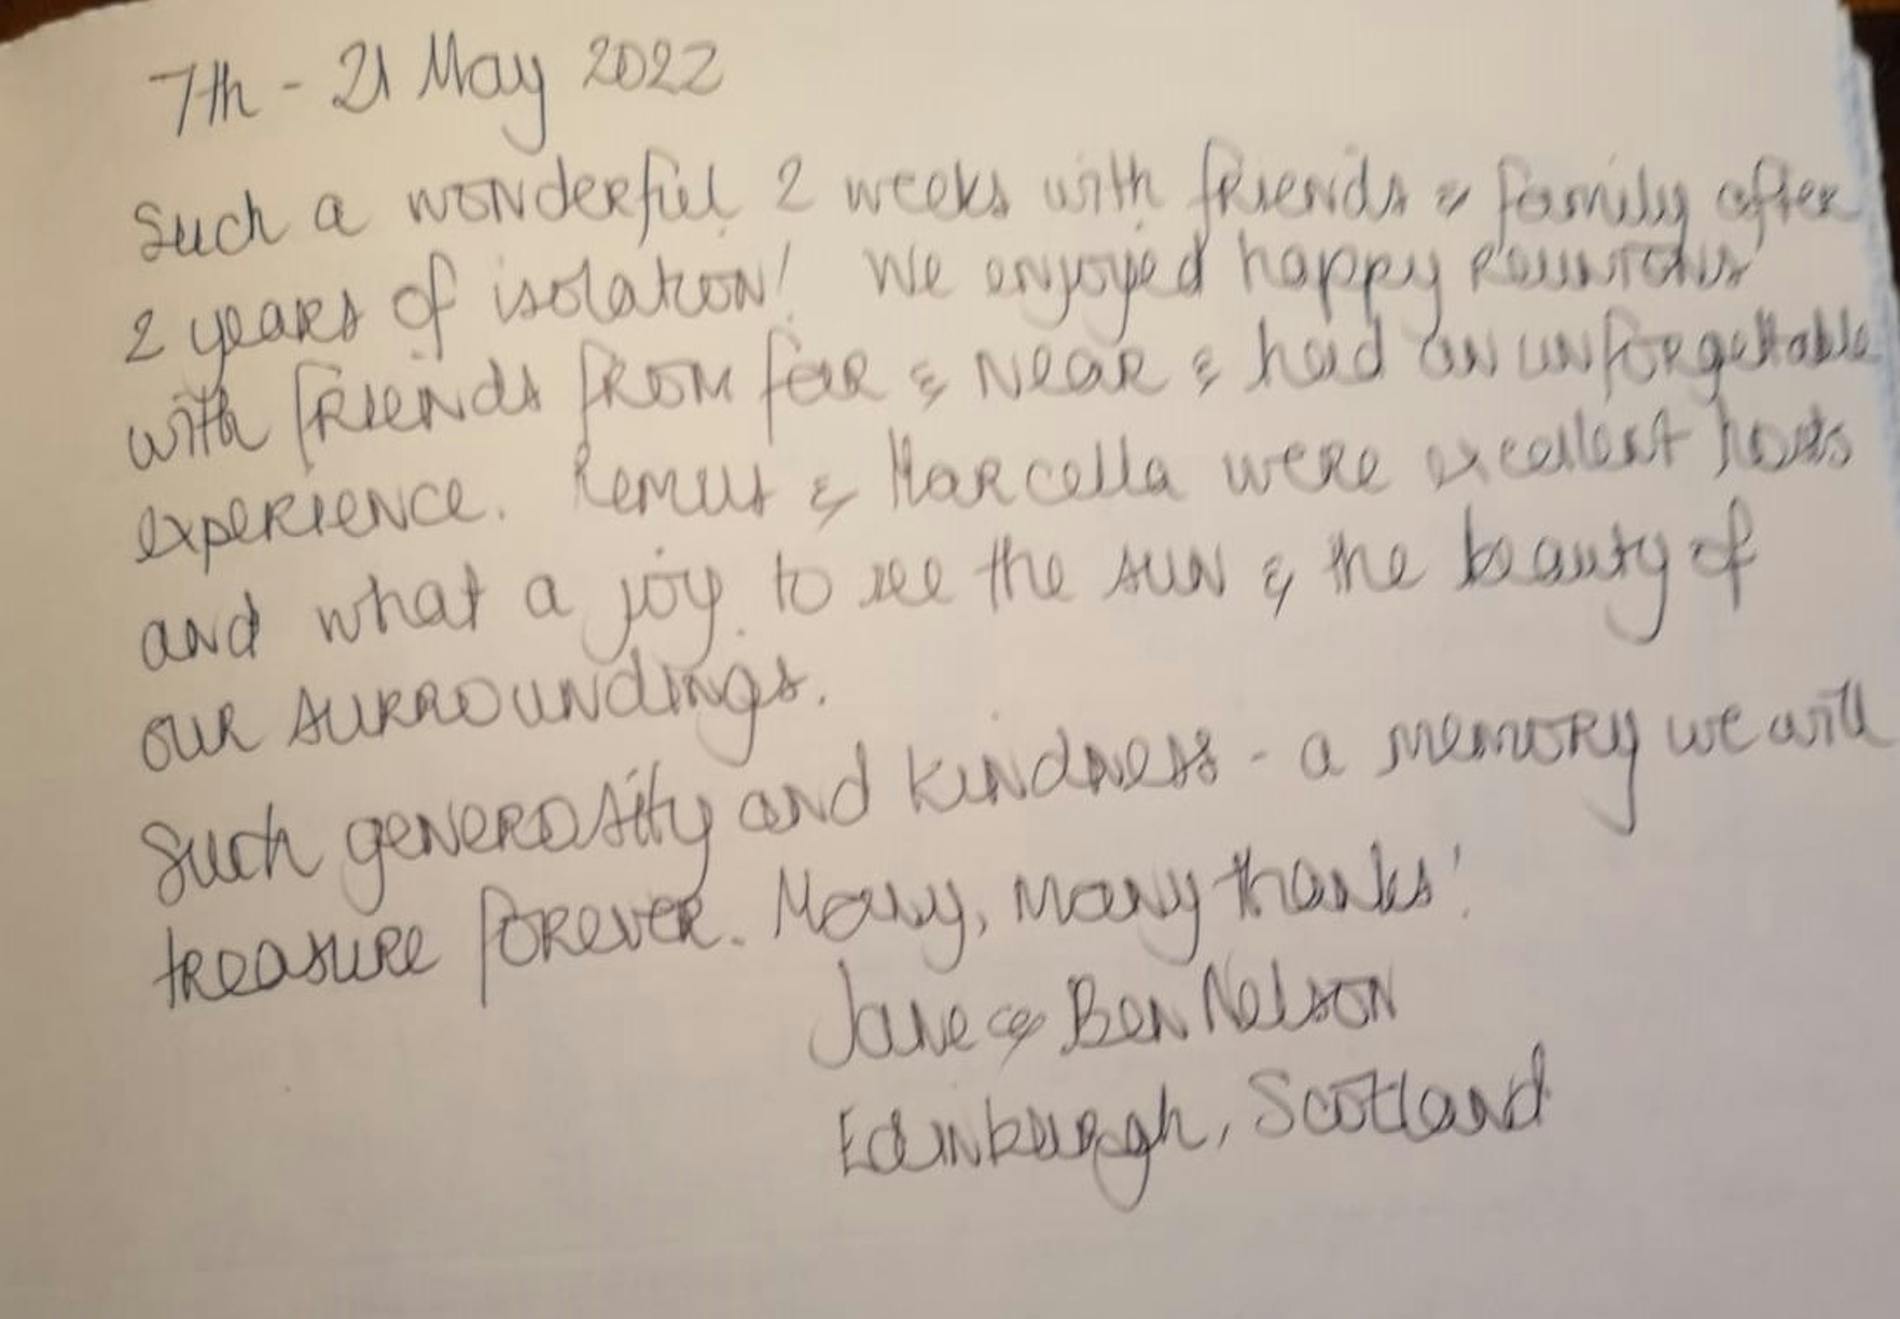 7th - 21 May 2022
Such a wonderful 2 weeks with friends & family after
2 years of isolation! We enjoyed happy reunions
with friends from far & near & had an unforgettable
experience. Remus & Marcella were excellent hosts
and what a joy to see the sun & the beauty of
our surroundings.
Such generosity and kindness - a memory we will
treasure forever. Many, many thanks!
Jane & Ben Nelson
Edinburgh, Scotland